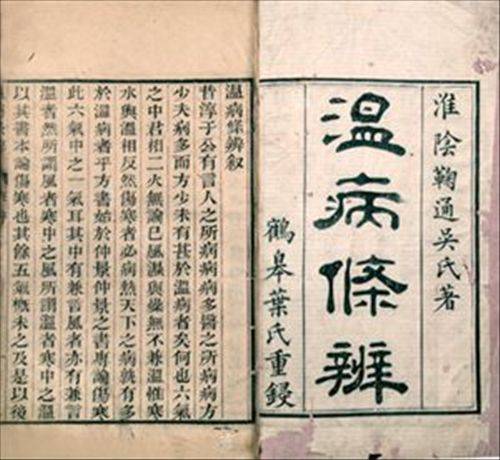 淮陰鞠通吳氏著
温病條辨
鶴皋葉氏重鋟
溫病條辨叙
昔淳于公有言人之所病病病多醫之所病病方
少夫病多而方少未有甚於溫病者矣何也六氣
之中君相二火無論已風濕與燥無不兼溫惟寒
水與溫相反然傷寒者必病熱天下之病孰有多
於溫病者乎方書始於仲景仲景之書專論傷寒
此六氣中之一氣耳其中有兼言風者亦有兼言
溫者然所謂風者寒中之風所謂溫者寒中之溫
以其書本論傷寒也其餘五氣概未之及是以後